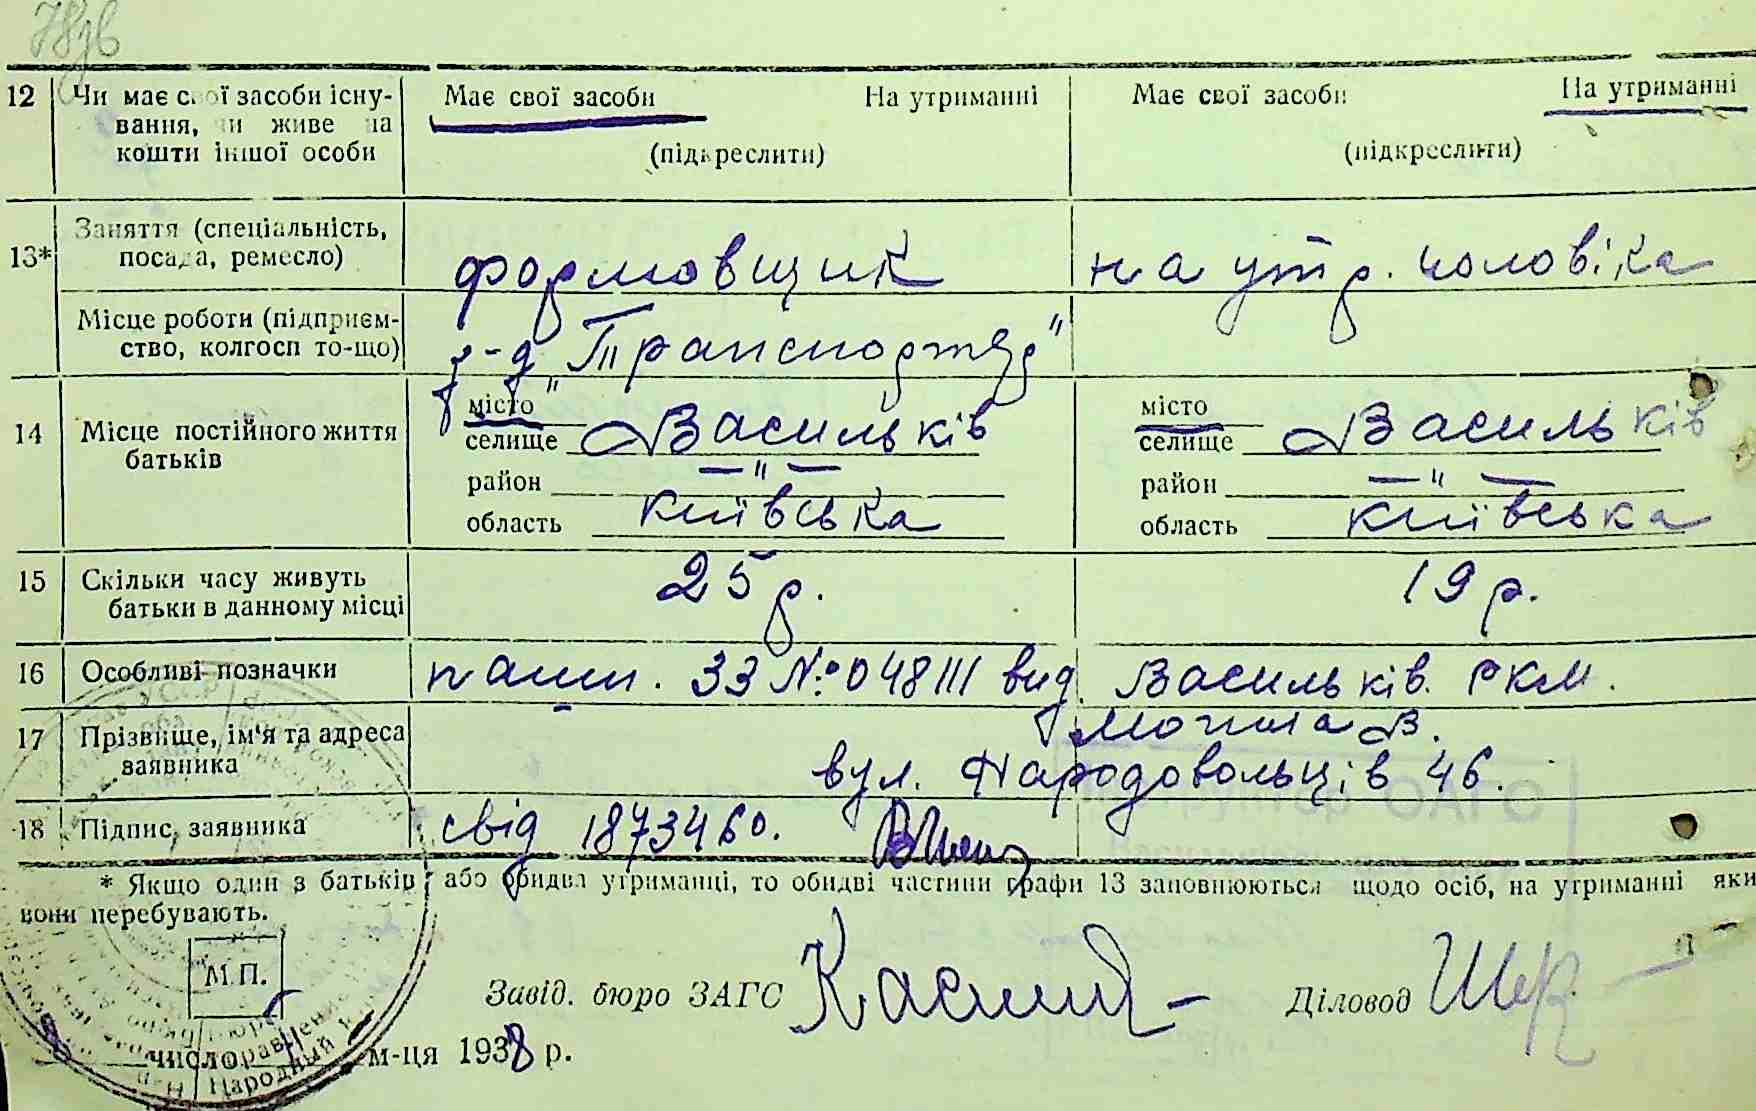 12 Чи має свої засоби існу- Має свої засоби На утриманні Має свої засоби На утриманні
вання, чи живе на
кошти іншої особи (підкреслити) (підкреслити)
13* Заняття (спеціальність,
посада, ремесло) формовщик на утр. чоловіка
Місце роботи (підприєм-
ство, колгосп то-що) з-д "Транспортер"
14 Місце постійного життя
батьків
місто місто
селище Васильків селище Васильків
район —"— район —"—
область київська область київська
15 Скільки часу живуть
батьки в данному місці 25 р. 19 р.
16 Особливі позначки пашп. 33 №: 048111 вид. Васильків. РКМ.
17 Прізвище, ім'я та адреса
заявника Могила В.
вул. Народовольців 46.
18 Підпис заявника свід 1873460.
* Якщо один з батьків, або обидва утриманці, то обидві частини графи 13 заповнюються щодо осіб, на утриманні яки
вони перебувають.
М.П.
Завід. бюро ЗАГС Діловод
число м-ця 1938 р.